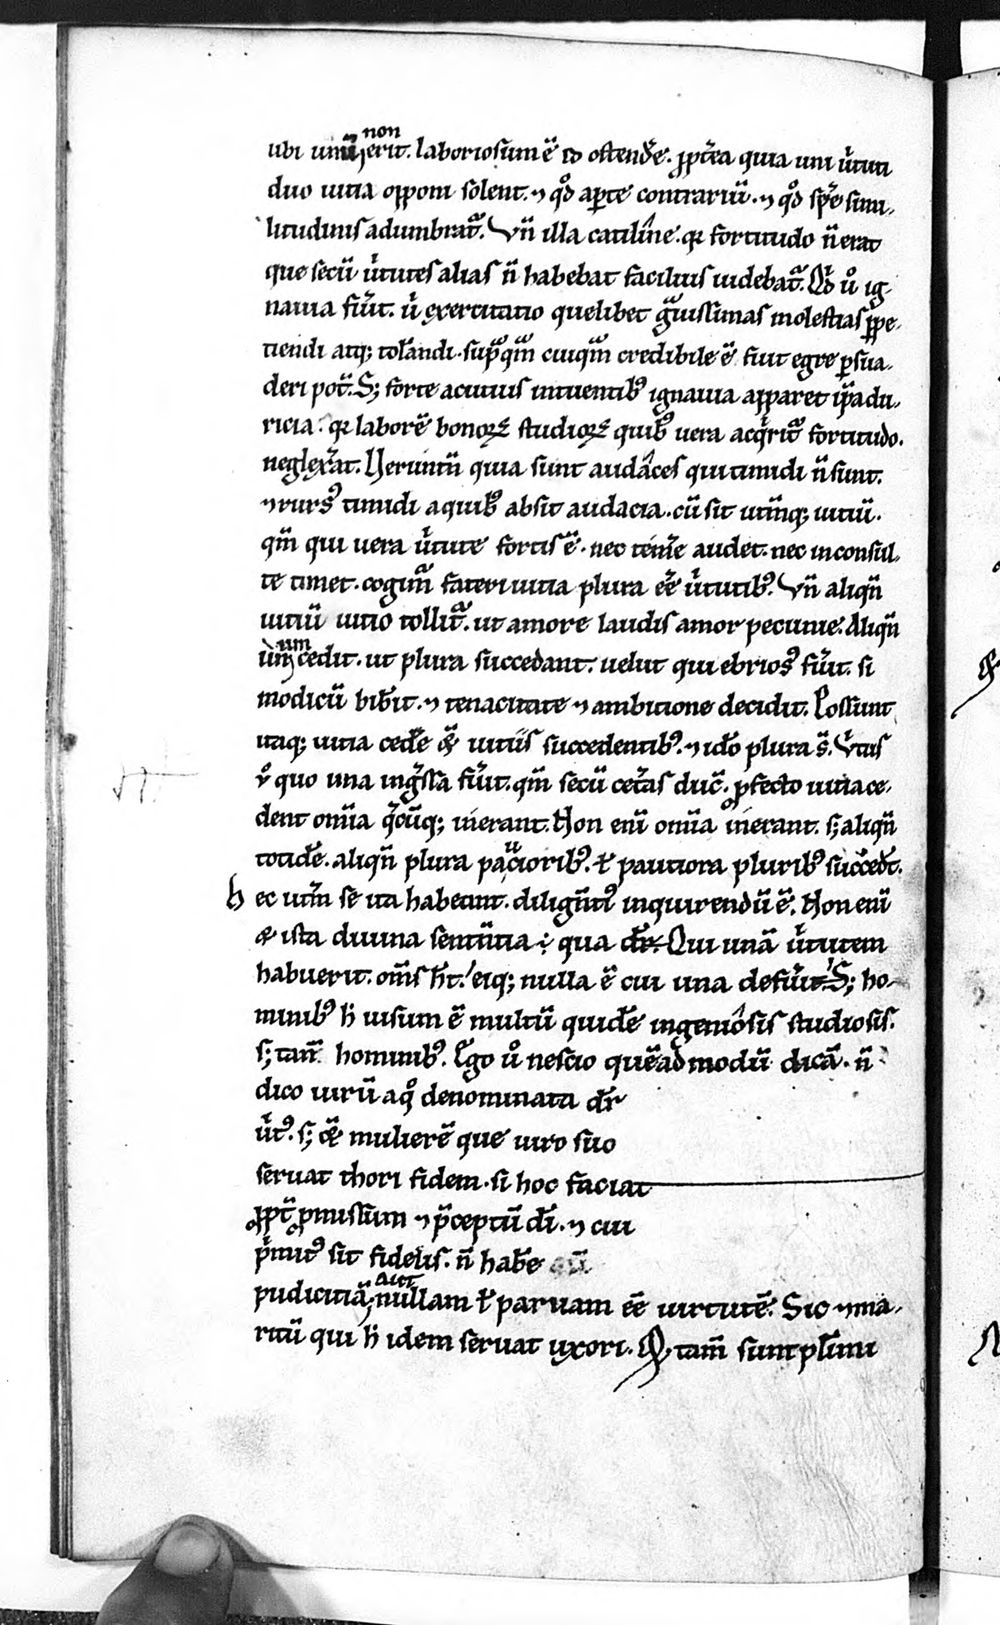 ubi unū non erit. laboriosum ē id ostendē. ꝓpt̄ea quia uni ūtuti
duo uitia opponi solent. ⁊ qd̊ aꝑte contrariū. ⁊ qd̊ spē simi-
litudinis adumbrat᷑. Vn̄ illa catiline. qꝛ fortitudo n̄ erat
que secū ūtutes alias n̄ habebat facilius uidebat᷑. Qd̄ ů ig-
nauia fūit. ūl exercitatio quelibet gͣuissimas molestias ꝑpe-
tiendi atq; tol̄andi. supͣqͣm cuiqͣm credibile ē fuit egre ꝑsua-
deri pot̄. S; forte acutius intuentib; ignauia apparet ip̄a du-
ricia. qꝛ laborē bonoꝝ studioꝝ quib; uera acqͥrit᷑ fortitudo.
neglex̄at. Veruntn̄ quia sunt audaces qui timidi n̄ sunt.
⁊ rurs᷒ timidi a quib; absit audacia. cū sit utrūq; uitiū.
qm̄ qui uera ūtute fortis ē. nec tem̄e audet. nec inconsul-
te timet. cogim᷑ fateri uitia plura eē ūtutib;. Vn̄ aliqn̄
uitiū uitio tollit᷑. ut amore laudis amor pecunie. Aliqn̄
unum cedit. ut plura succedant. uelut qui ebrios᷒ fūit. si
modicū bib̄it. ⁊ tenacitate ⁊ ambitione decidit. Possunt
itaq; uitia cedē & uitiis succedentib;. ⁊ iđo plura s̄. Vt̄us
ů quo una ingͣssa fūit. qm̄ secū cet̄as duc̄. ꝓfecto uitia ce-
dent om̄ia q̄cūq; inerant. Non enī om̄ia inerant. s; aliqn̄
totidē. aliqn̄ plura pauciorib;. ł pautiora plurib; succed̄t.
Hec utrū se ita habeant. dilign̄ti᷒ inquirendū ē. Non enī
& ista diuina sentn̄tia ÷ qua dr̄. Qui unā ūtutem
habuerit. om̄s h̄t. eiq; nulla ē cui una defūit. S; ho-
minib; h̄ uisum ē multū quidē ingeniosis studiosis.
s; tam̄ hominib;. Ego ů nescio quēadmodū dicā. n̄
dico uirū a quͦ denominata dr̄
ūt᷒. s; & mulierē que uiro suo
seruat thori fidem. si hoc faciat
ꝓpt̄ ꝓmissum ⁊ p̄ceptū dī. ⁊ cui
pͥmit᷒ sit fidelis. n̄ habē
pudicitiā. aut nullam ł paruam eē uirtutē. Sic ⁊ ma-
ritū qui h̄ idem seruat uxori. Et tam̄ sunt pl̄imi